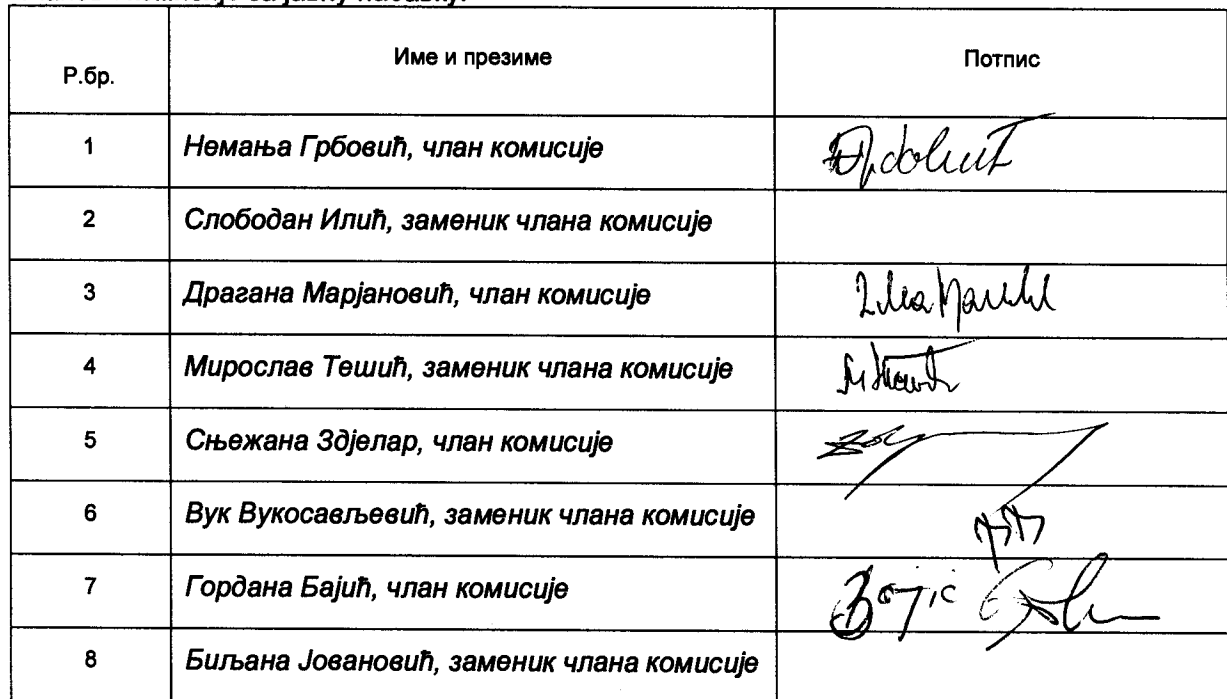 Р.бр. Име и презиме Потпис
1 Немања Грбовић, члан комисије
2 Слободан Илић, заменик члана комисије
3 Драгана Марјановић, члан комисије
4 Мирослав Тешић, заменик члана комисије
5 Сњежана Здјелар, члан комисије
6 Вук Вукосављевић, заменик члана комисије
7 Гордана Бајић, члан комисије
8 Биљана Јовановић, заменик члана комисије